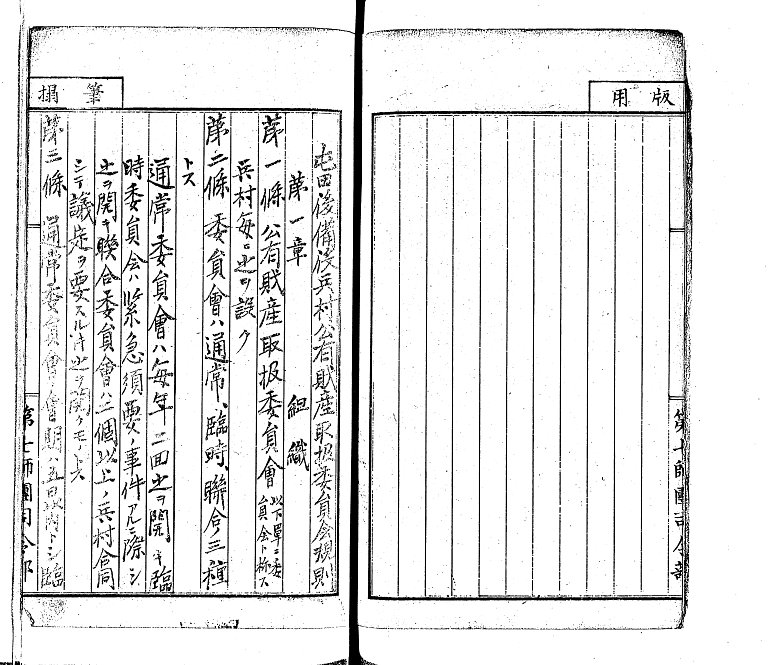 用版
第七師團司令部
筆搨
屯田後備役兵村公有財産取扱委員会規則
第一章 組織
第一條 公有財産取扱委員會以下單ニ委員会ト称スハ
兵村毎ニ之ヲ設ク
第二條 委員會ハ通常、臨時、聯合ノ三種
トス
通常委員會ハ毎年二回之ヲ開キ臨
時委員会ハ緊急須要ノ事件アルニ際シ
之ヲ開キ聯合委員會ハ二個以上ノ兵村合同
シテ議定ヲ要スル時之ヲ開クモノトス
第三條 通常委員會ノ會期ハ五日以内トシ臨
第七師團司令部